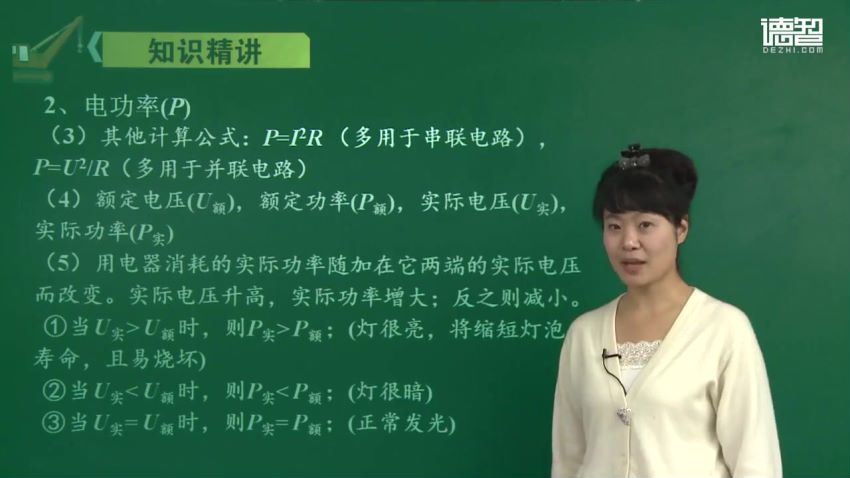 德智
DEZHI.COM
知识精讲
2、电功率(P)
（3）其他计算公式：P=I²R（多用于串联电路），
P=U²/R（多用于并联电路）
（4）额定电压(U额)，额定功率(P额)，实际电压(U实)，
实际功率(P实)
（5）用电器消耗的实际功率随加在它两端的实际电压
而改变。实际电压升高，实际功率增大；反之则减小。
①当U实>U额时，则P实>P额；(灯很亮，将缩短灯泡
寿命，且易烧坏)
②当U实<U额时，则P实<P额；(灯很暗)
③当U实=U额时，则P实=P额；(正常发光)